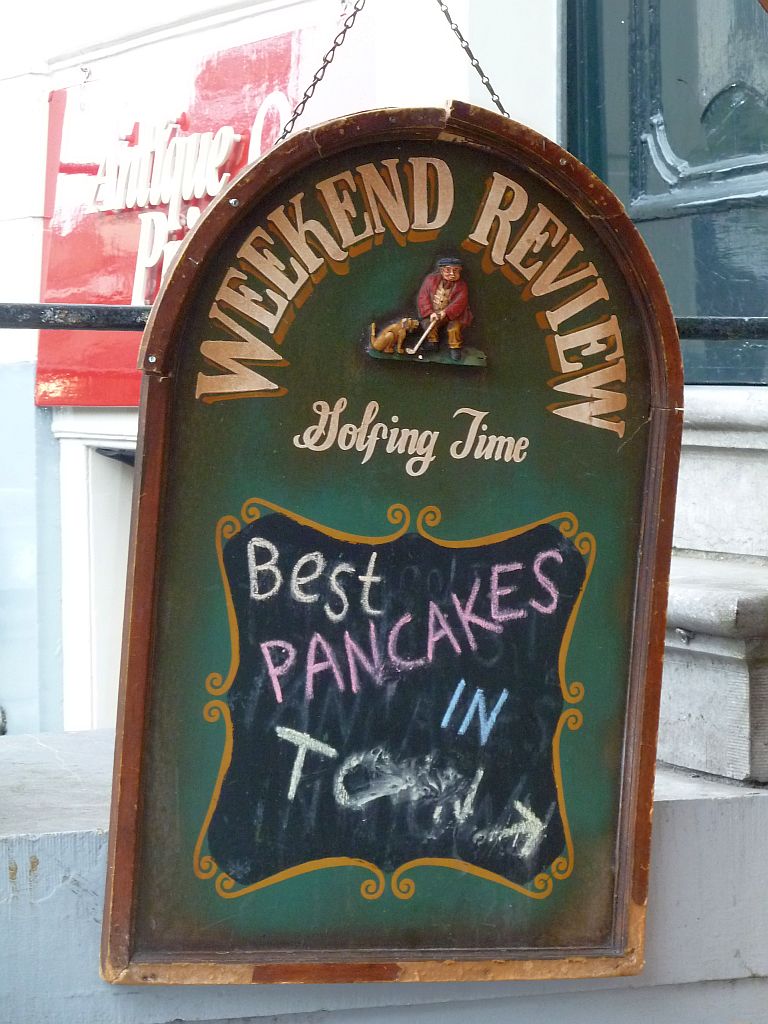 Antique
WEEKEND REVIEW
Golfing Time
Best
PANCAKES
IN
TOWN